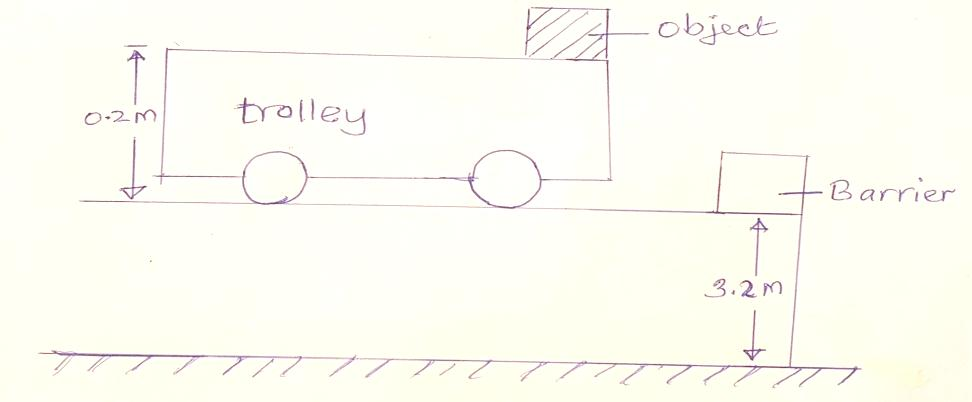 object
0.2m
trolley
Barrier
3.2m